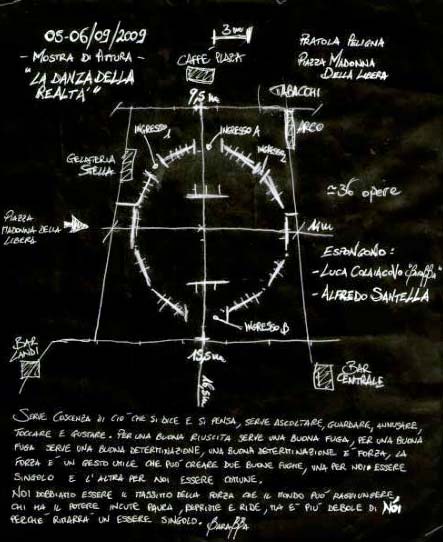 05-06/09/2009
- MOSTRA DI PITTURA -
"LA DANZA DELLA
REALTÀ"
3m
CAFFÈ PLAZA
PRATOLA PELIGNA
PIAZZA MADONNA
DELLA LIBERA
TABACCHI
9,5m
ARCO
INGRESSO 1
INGRESSO A
INGRESSO 2
GELATERIA
STELLA
≃36 opere
PIAZZA
MADONNA DELLA
LIBERA
11m
ESPONGONO:
- LUCA COLAIACOVO "Baraffa"
- ALFREDO SANTELLA
INGRESSO B
BAR
LANDI
15,5m
16,5m
BAR
CENTRALE
SERVE COSCENZA DI CIÒ CHE SI DICE E SI PENSA, SERVE ASCOLTARE, GUARDARE, ANNUSARE,
TOCCARE E GUSTARE. PER UNA BUONA RIUSCITA SERVE UNA BUONA FUGA, PER UNA BUONA
FUGA SERVE UNA BUONA DETERMINAZIONE, UNA BUONA DETERMINAZIONE È FORZA, LA
FORZA È UN GESTO UTILE CHE PUÒ CREARE DUE BUONE FUGHE, UNA PER NOI ESSERE
SINGOLO E L'ALTRA PER NOI ESSERE COMUNE.
NOI DOBBIAMO ESSERE IL MASSIMO DELLA FORZA CHE IL MONDO PUÒ RAGGIUNGERE,
CHI HA IL POTERE INCUTE PAURA, REPRIME E RIDE, MA È PIÙ DEBOLE DI NOI
PERCHÈ RIMARRÀ UN ESSERE SINGOLO. Baraffa